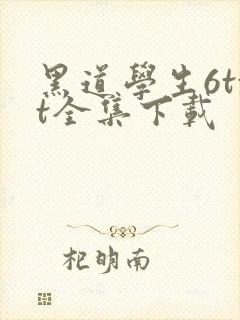 黑道學生6tx
t全集下載
杞明南